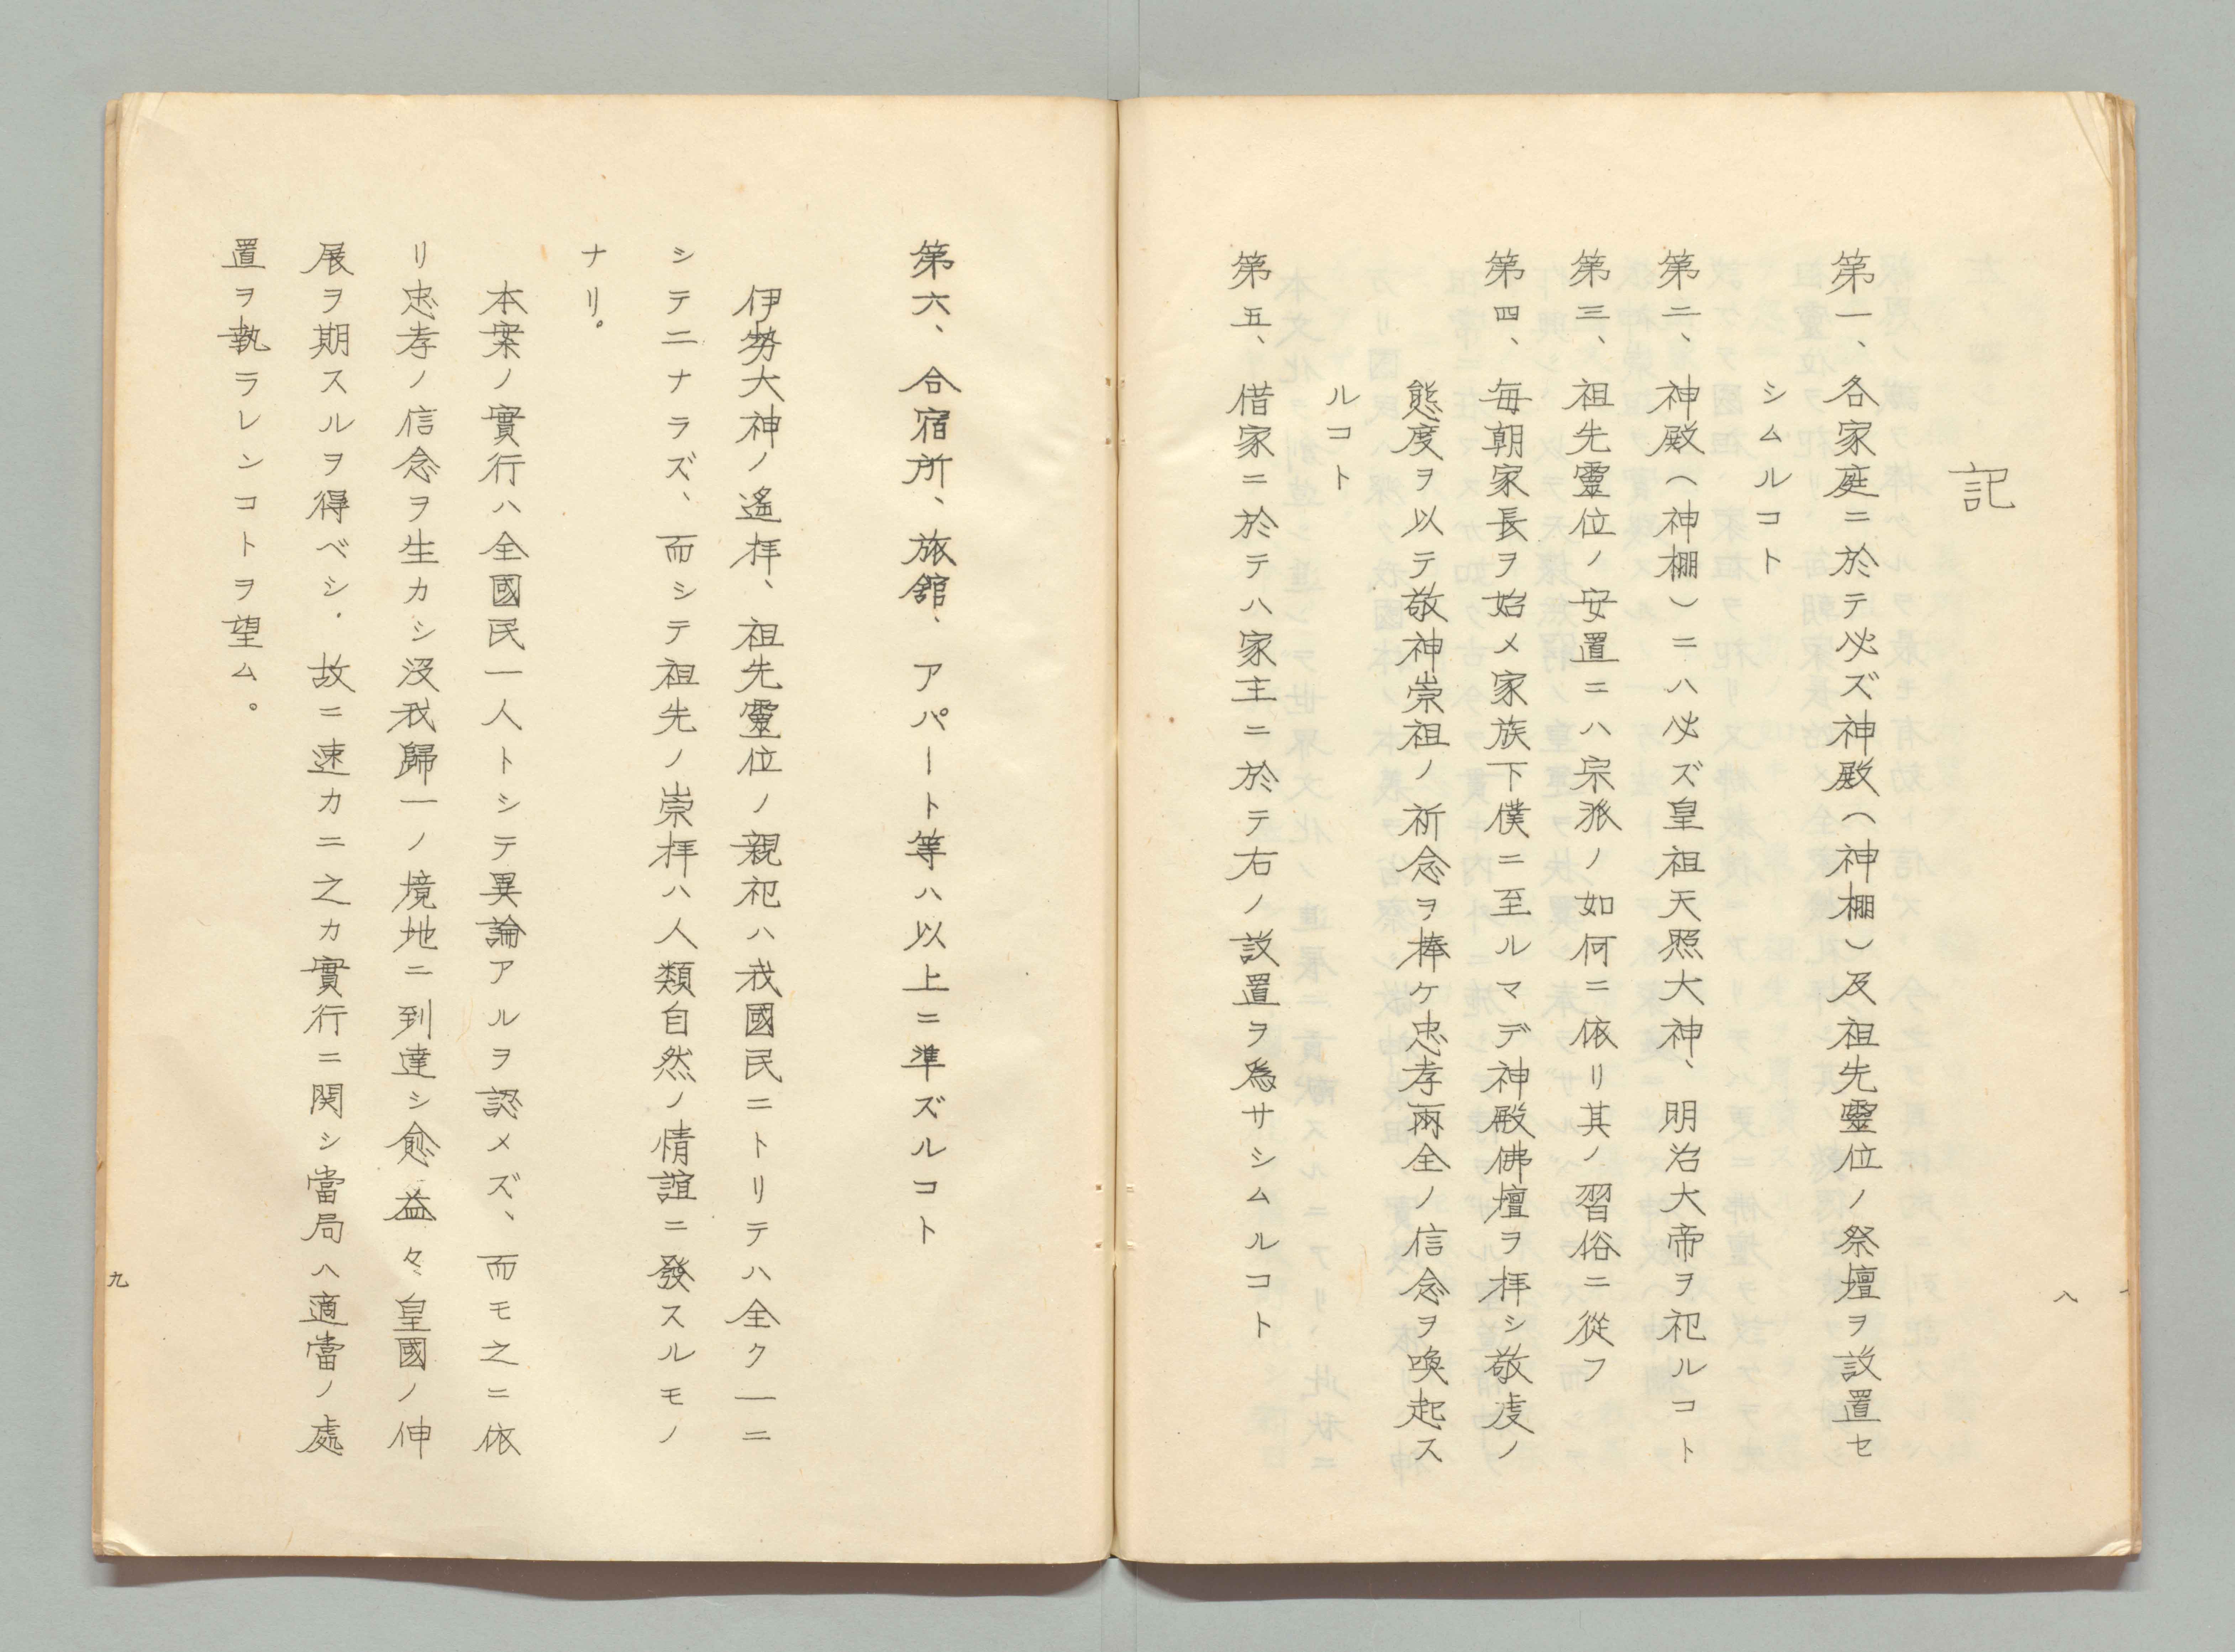 記
第一、各家庭ニ於テ必ズ神殿(神棚)及祖先靈位ノ祭壇ヲ設置セ
シムルコト
第二、神殿(神棚)ニハ必ズ皇祖天照大神、明治大帝ヲ祀ルコト
第三、祖先靈位ノ安置ニハ宗派ノ如何ニ依リ其ノ習俗ニ從フ
第四、毎朝家長ヲ始メ家族下僕ニ至ルマデ神殿佛壇ヲ拝シ敬虔ノ
態度ヲ以テ敬神崇祖ノ祈念ヲ捧ケ忠孝兩全ノ信念ヲ喚起ス
ルコト
第五、借家ニ於テハ家主ニ於テ右ノ設置ヲ爲サシムルコト
八
第六、合宿所、旅舘、アパート等ハ以上ニ準ズルコト
伊勢大神ノ遙拝、祖先靈位ノ親祀ハ我國民ニトリテハ全ク一ニ
シテ二ナラズ、而シテ祖先ノ崇拝ハ人類自然ノ情誼ニ發スルモノ
ナリ。
本案ノ實行ハ全國民一人トシテ異論アルヲ認メズ、而モ之ニ依
リ忠孝ノ信念ヲ生カシ沒我歸一ノ境地ニ到達シ愈益々皇國ノ伸
展ヲ期スルヲ得ベシ.故ニ速カニ之カ實行ニ関シ當局ヘ適當ノ處
置ヲ執ラレンコトヲ望ム。
九